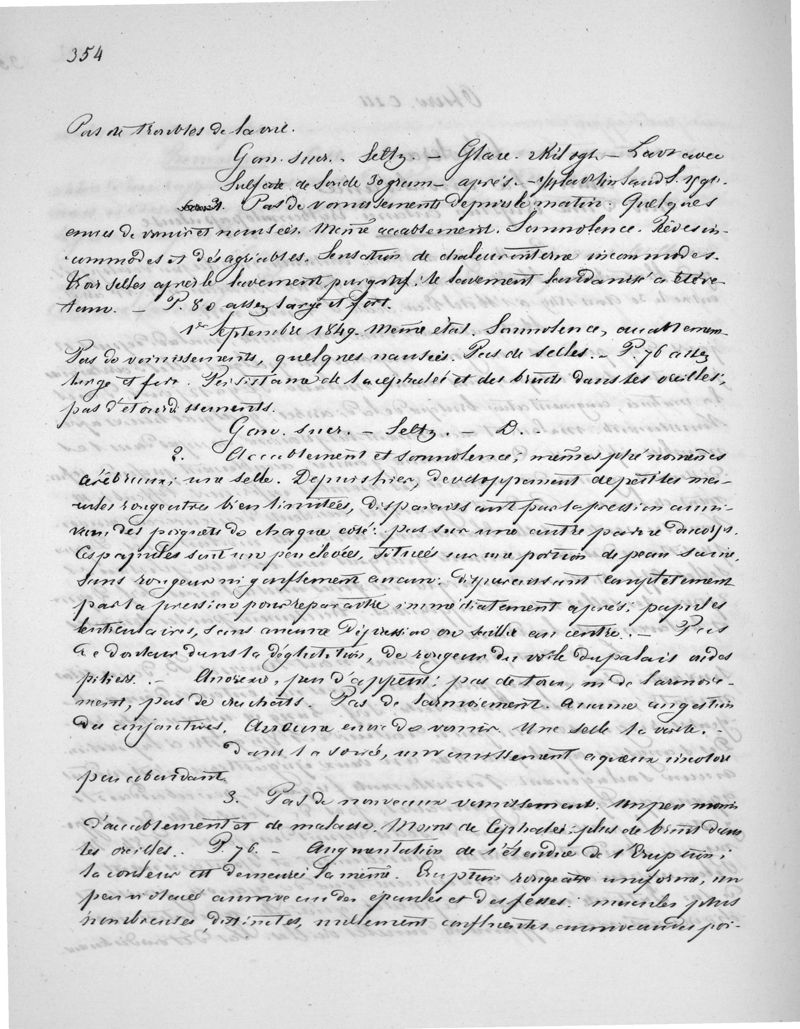 354
Pas de troubles de la vue.
Gom. sucr. - Seltz. - Glace. 2 Kilogr. - Lavt avec
Sulfate de Soude 30 gram - après. - Laud. S. Vgt.
31. Pas de vomissements depuis le matin. Quelques
envies de vomir et nausées. Même accablement. Somnolence. Rêves in-
commodes et désagréables. Sensation de chaleur interne incommodes.
Trois selles après le lavement purgatif: le lavement laudanisé a été re-
tenu. - P. 80 assez large et fort.
1er Septembre 1849. Même état. Somnolence, accablemen-
Pas de vomissements, quelques nausées. Pas de selles. - P. 76 assez
large et fort. Persistance de la céphalée et des bruits dans les oreilles;
pas d'étourdissements.
Gom. sucr. - Seltz. - D.
2. Accablement et somnolence; mêmes phénomènes
cérébraux; une selle. Depuis hier, développement de petites ma-
cules rougeatres bien limitées, disparaissant par la pression au ni-
veau des poignets de chaque côté: pas sur une autre partie du corps.
Ces papules sont un peu élevées, situées sur une portion de peau saine,
sans rougeur ni gonflement aucun: disparaissant complètement
par la pression pour reparaitre immédiatement après: papules
lenticulaires, sans aucune dépression ou saillie au centre. - Pas
de douleur dans la déglutition, de rougeur du voile du palais ou des
piliers. - Anorexie, peu d'appétit; pas de toux, ni de larmoie-
ment, pas de crachats. Pas de larmoiement. Aucune congestion
des conjonctives. Aucune envie de vomir. Une selle la veille.
Dans la soirée, un vomissement aqueux incolore
peu abondant.
3. Pas de nouveaux vomissement. Un peu moins
d'accablement et de malaise. Moins de Céphalée: plus de bruit dans
les oreilles. P. 76. - Augmentation de l'étendue de l'éruption;
la couleur est demeurée la même. Eruption rougeatre uniforme, un
peu violacée au niveau des épaules et des fesses: macules plus
nombreuses, distinctes, nullement confluentes au niveau des poi-